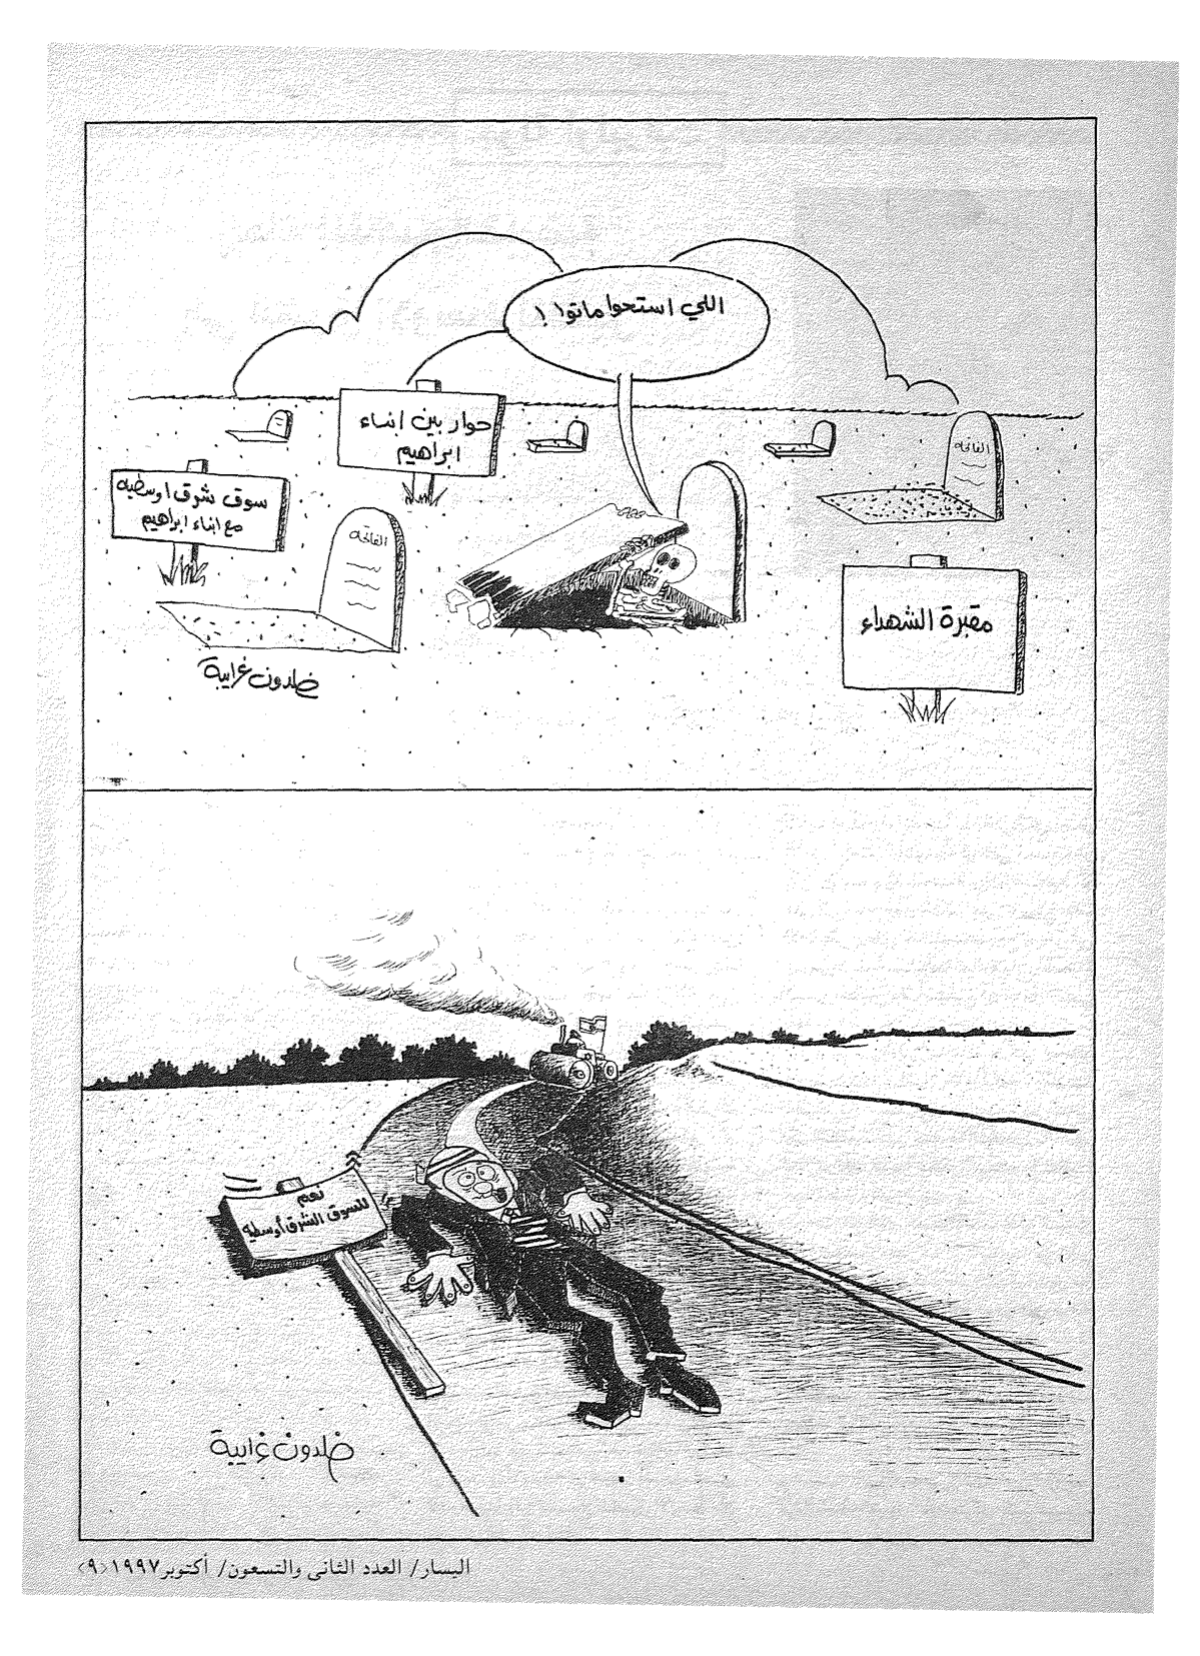 اللي استحوا ماتوا !
حوار بين ابناء
ابراهيم
سوق شرق اوسطيه
مع ابناء ابراهيم
الفاتحة
الفاتحة
مقبرة الشهداء
خلدون غرايبة
نعم
للسوق الشرق أوسطيه
خلدون غرايبة
اليسار/ العدد الثانى والتسعون/ أكتوبر١٩٩٧<٩>